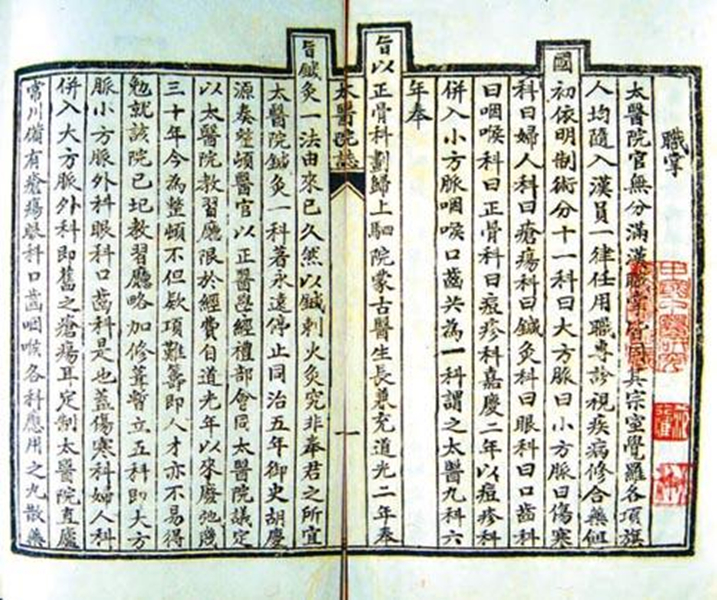 職掌
太醫院官無分滿漢職掌皆同其宗室覺羅各項旗
人均隨入漢員一律任用職專診視疾病修合藥餌
國初依明制術分十一科曰大方脈曰小方脈曰傷寒
科曰婦人科曰瘡瘍科曰鍼灸科曰眼科曰口齒科
曰咽喉科曰正骨科曰痘疹科嘉慶二年以痘疹科
併入小方脈咽喉口齒共為一科謂之太醫九科六
年奉
旨以正骨科劃歸上駟院蒙古醫生長兼充道光二年奉
太醫院誌
一
旨鍼灸一法由來已久然以鍼刺火灸究非奉君之所宜
太醫院鍼灸一科著永遠停止同治五年御史胡慶
源奏整頓醫官以正醫學經禮部會同太醫院議定
以太醫院教習廳限於經費自道光年以來廢弛幾
三十年今為整頓不但欵項難籌即人才亦不易得
勉就該院已圮教習廳略加修葺暫立五科即大方
脈小方脈外科眼科口齒科是也蓋傷寒科婦人科
併入大方脈外科即舊之瘡瘍耳定制太醫院直廬
常川備有瘡瘍眼科口齒咽喉各科應用之丸散藥